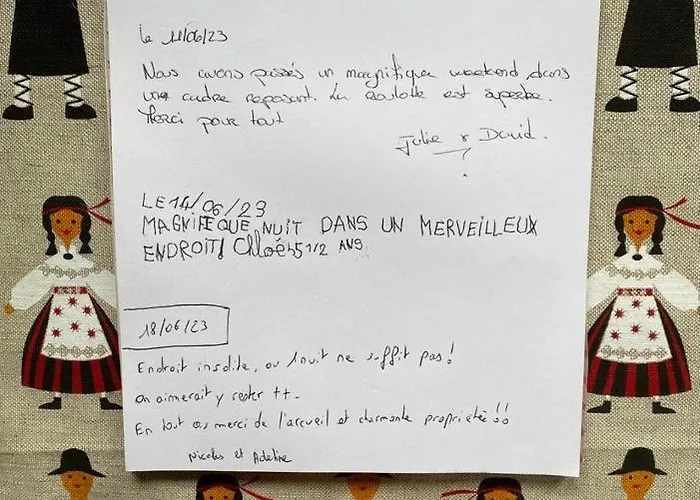 Le 11/06/23
Nous avons passés un magnifique weekend dans
une cadre reposant. La roulotte est superbe.
Merci pour tout
Julie & David.
LE 14/06/23
MAGNIFEQUE NUIT DANS UN MERVEILLEUX
ENDROIT! Chloé 5 1/2 ANS
18/06/23
Endroit insolite, ou 1 nuit ne suffit pas!
On aimerait y rester ++.
En tout cas merci de l'accueil et charmante propriétée!!
Nicolas et Adeline